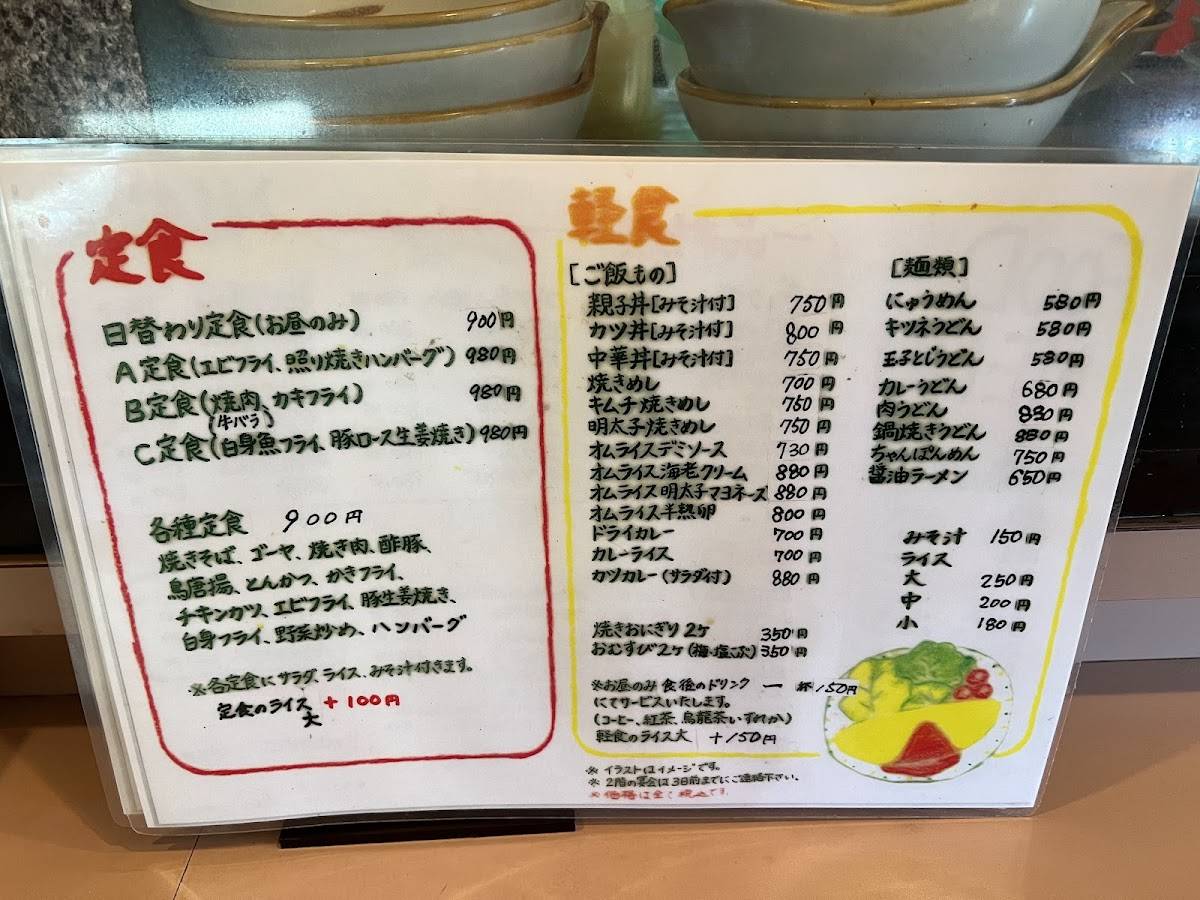 定食
日替わり定食(お昼のみ) 900円
A定食(エビフライ、照り焼きハンバーグ) 980円
B定食(焼肉、カキフライ) 980円
(牛バラ)
C定食(白身魚フライ、豚ロース生姜焼き) 980円
各種定食 900円
焼きそば、ゴーヤ、焼き肉、酢豚、
鳥唐揚、とんかつ、かきフライ、
チキンカツ、エビフライ、豚生姜焼き、
白身フライ、野菜炒め、ハンバーグ
※各定食にサラダ、ライス、みそ汁付きます。
定食のライス大 +100円
軽食
[ご飯もの]
親子丼[みそ汁付] 750円
カツ丼[みそ汁付] 800円
中華丼[みそ汁付] 750円
焼きめし 700円
キムチ焼きめし 750円
明太子焼きめし 750円
オムライスデミソース 730円
オムライス海老クリーム 880円
オムライス明太子マヨネーズ 880円
オムライス半熟卵 800円
ドライカレー 700円
カレーライス 700円
カツカレー(サラダ付) 880円
焼きおにぎり2ケ 350円
おむすび2ケ(梅・塩こぶ) 350円
※お昼のみ 食後のドリンク 一杯150円
にてサービスいたします。
(コーヒー、紅茶、烏龍茶いずれか)
軽食のライス大 +150円
[麺類]
にゅうめん 580円
キツネうどん 580円
玉子とじうどん 580円
カレーうどん 680円
肉うどん 880円
鍋焼きうどん 880円
ちゃんぽんめん 750円
醤油ラーメン 650円
みそ汁 150円
ライス
大 250円
中 200円
小 180円
※イラストはイメージです。
※2階の宴会は3日前までにご連絡下さい。
※価格は全て税込です。